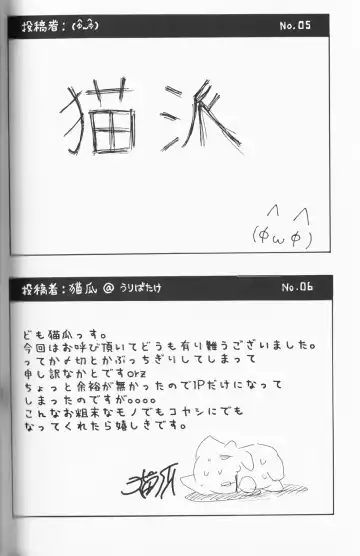 投稿者：(φ_φ) No.05
猫派
(φωφ)
投稿者：猫瓜 @ うりぱたけ No.06
ども猫瓜っす。
今回はお呼び頂いてどうも有り難うございました。
ってか〆切とかぶっちぎりしてしまって
申し訳なかとですorz
ちょっと余裕が無かったので1Pだけになって
しまったのですが。。。。
こんなお粗末なモノでもコヤシにでも
なってくれたら嬉しきです。
猫瓜